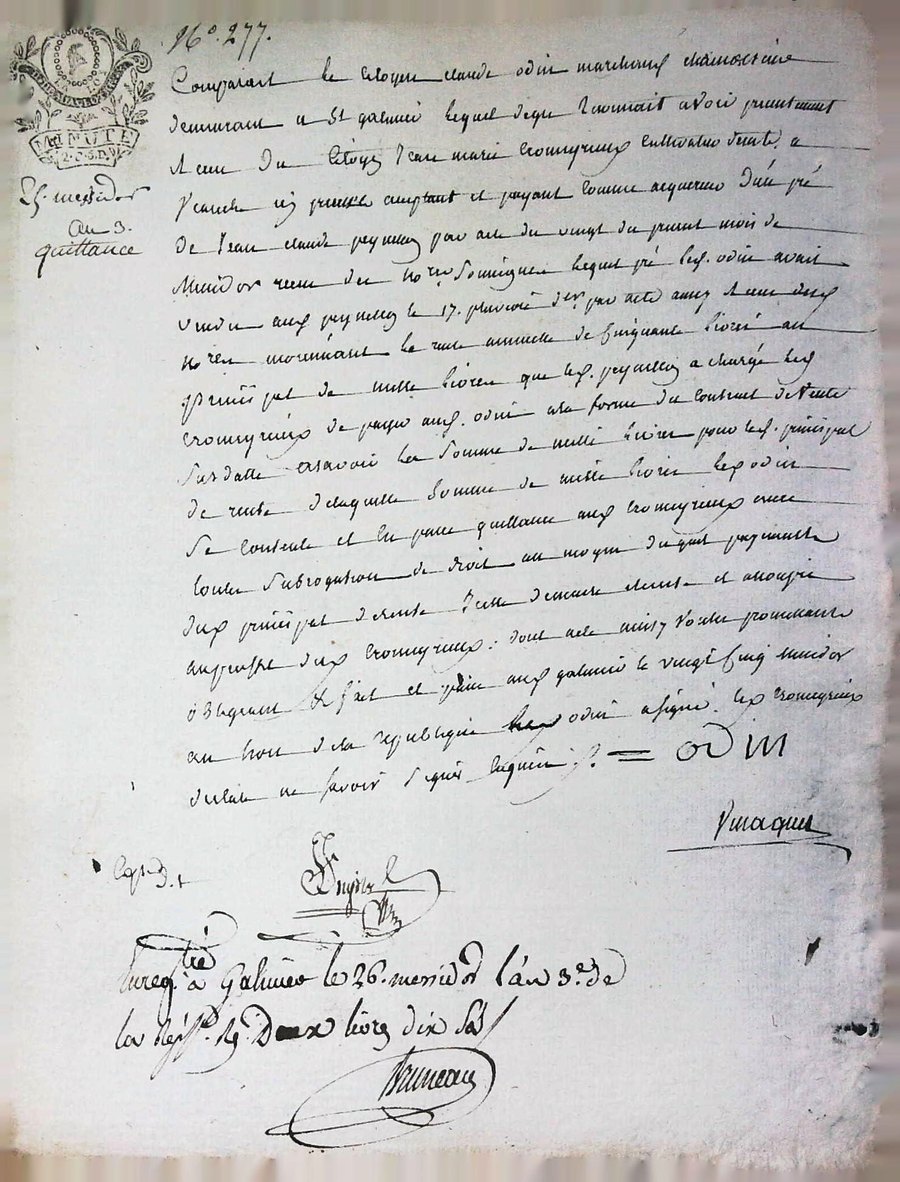 N°. 277.
LA LOI
MINUTE
2. C. S. D.
25. messidor
an 3.
quittance
Comparant le Citoyen claude odin marchand chamoiseur
demeurant a St galmier lequel de gré reconnait avoir presentement
receu du Citoyen Jean marie Cromeyrieux Cultivateur demt. a
Veauche icy present acceptant et payant comme acquereur d'un pré
de Jean claude peynellon par acte du vingt du present mois de
Messidor receu des nores. lequel pré led. odin avait
vendu aud peynellon le 17. pluviose der. par acte aussy receu desd
nores moyennant la rente annuelle de Cinquante livres au
principal de mille livres que led. peynellon a chargé led
Cromeyrieux de payer aud. odin a la forme du Contract de Vente
susdatte asavoir la Somme de mille livres pour led. principal
de rente de laquelle Somme de mille livres led odin
Se Contente et en passe quittance aud Cromeyrieux avec
toute Subrogation de droit au moyen duquel payement
dud principal de rente Icelle demeure eteinte et assoupie
au proffit dud Cromeyrieux. dont acte ainsy Voulu promettant
obligeant & fait et passé aud galmier le vingt cinq messidor
an trois de la republique led odin a signé. led Cromeyrieux
declaré ne savoir signer enquis /. = odin
Exp. 3. +
Enregtré a Galmier le 26. messidor l'an 3e. de
la Rép. R. Deux livres dix Sols
Bruneau